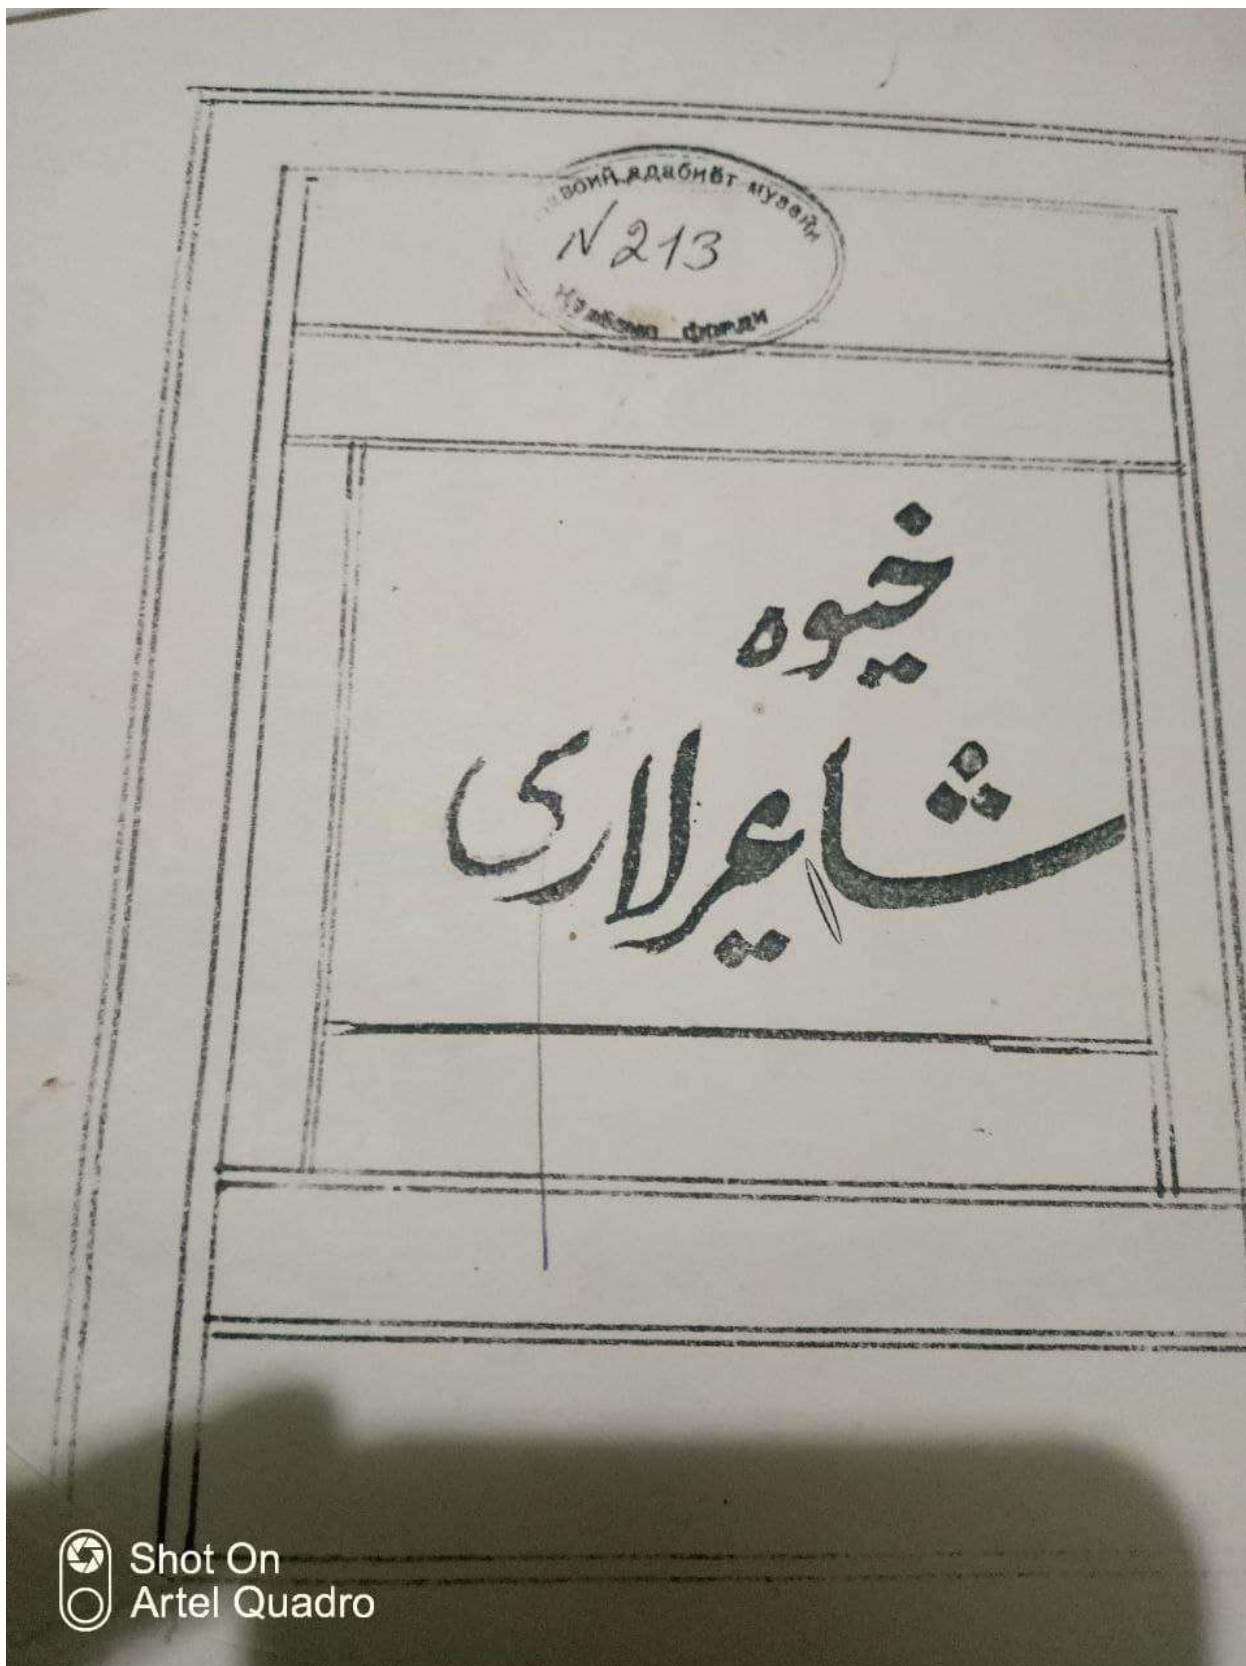 адабиёт музейи
N 213
фонди
خیوه
شاعیرلاری
Shot On
Artel Quadro